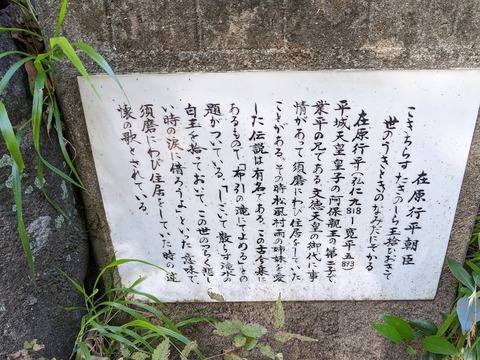 在原行平朝臣
こきちらす たきのしら玉拾ひおきて
世のうきときのなみだにぞかる
在原行平(弘仁九818―寛平五893)
平城天皇皇子の阿保親王の第二子で
業平の兄である 文徳天皇の御代に事
情があって須磨にわび住居をしていた
ことがある。その時松風村雨の姉妹を愛
した伝説は有名である。この古今集に
あるもので「布引の滝にてよめる」との
題がついている。「しごいて散らす滝水の
白玉を拾っておいて、この世のつらく悲し
い時の涙に借ろうよ」といった意味で、
須磨にわび住居をしていた時の述
懐の歌とされている。